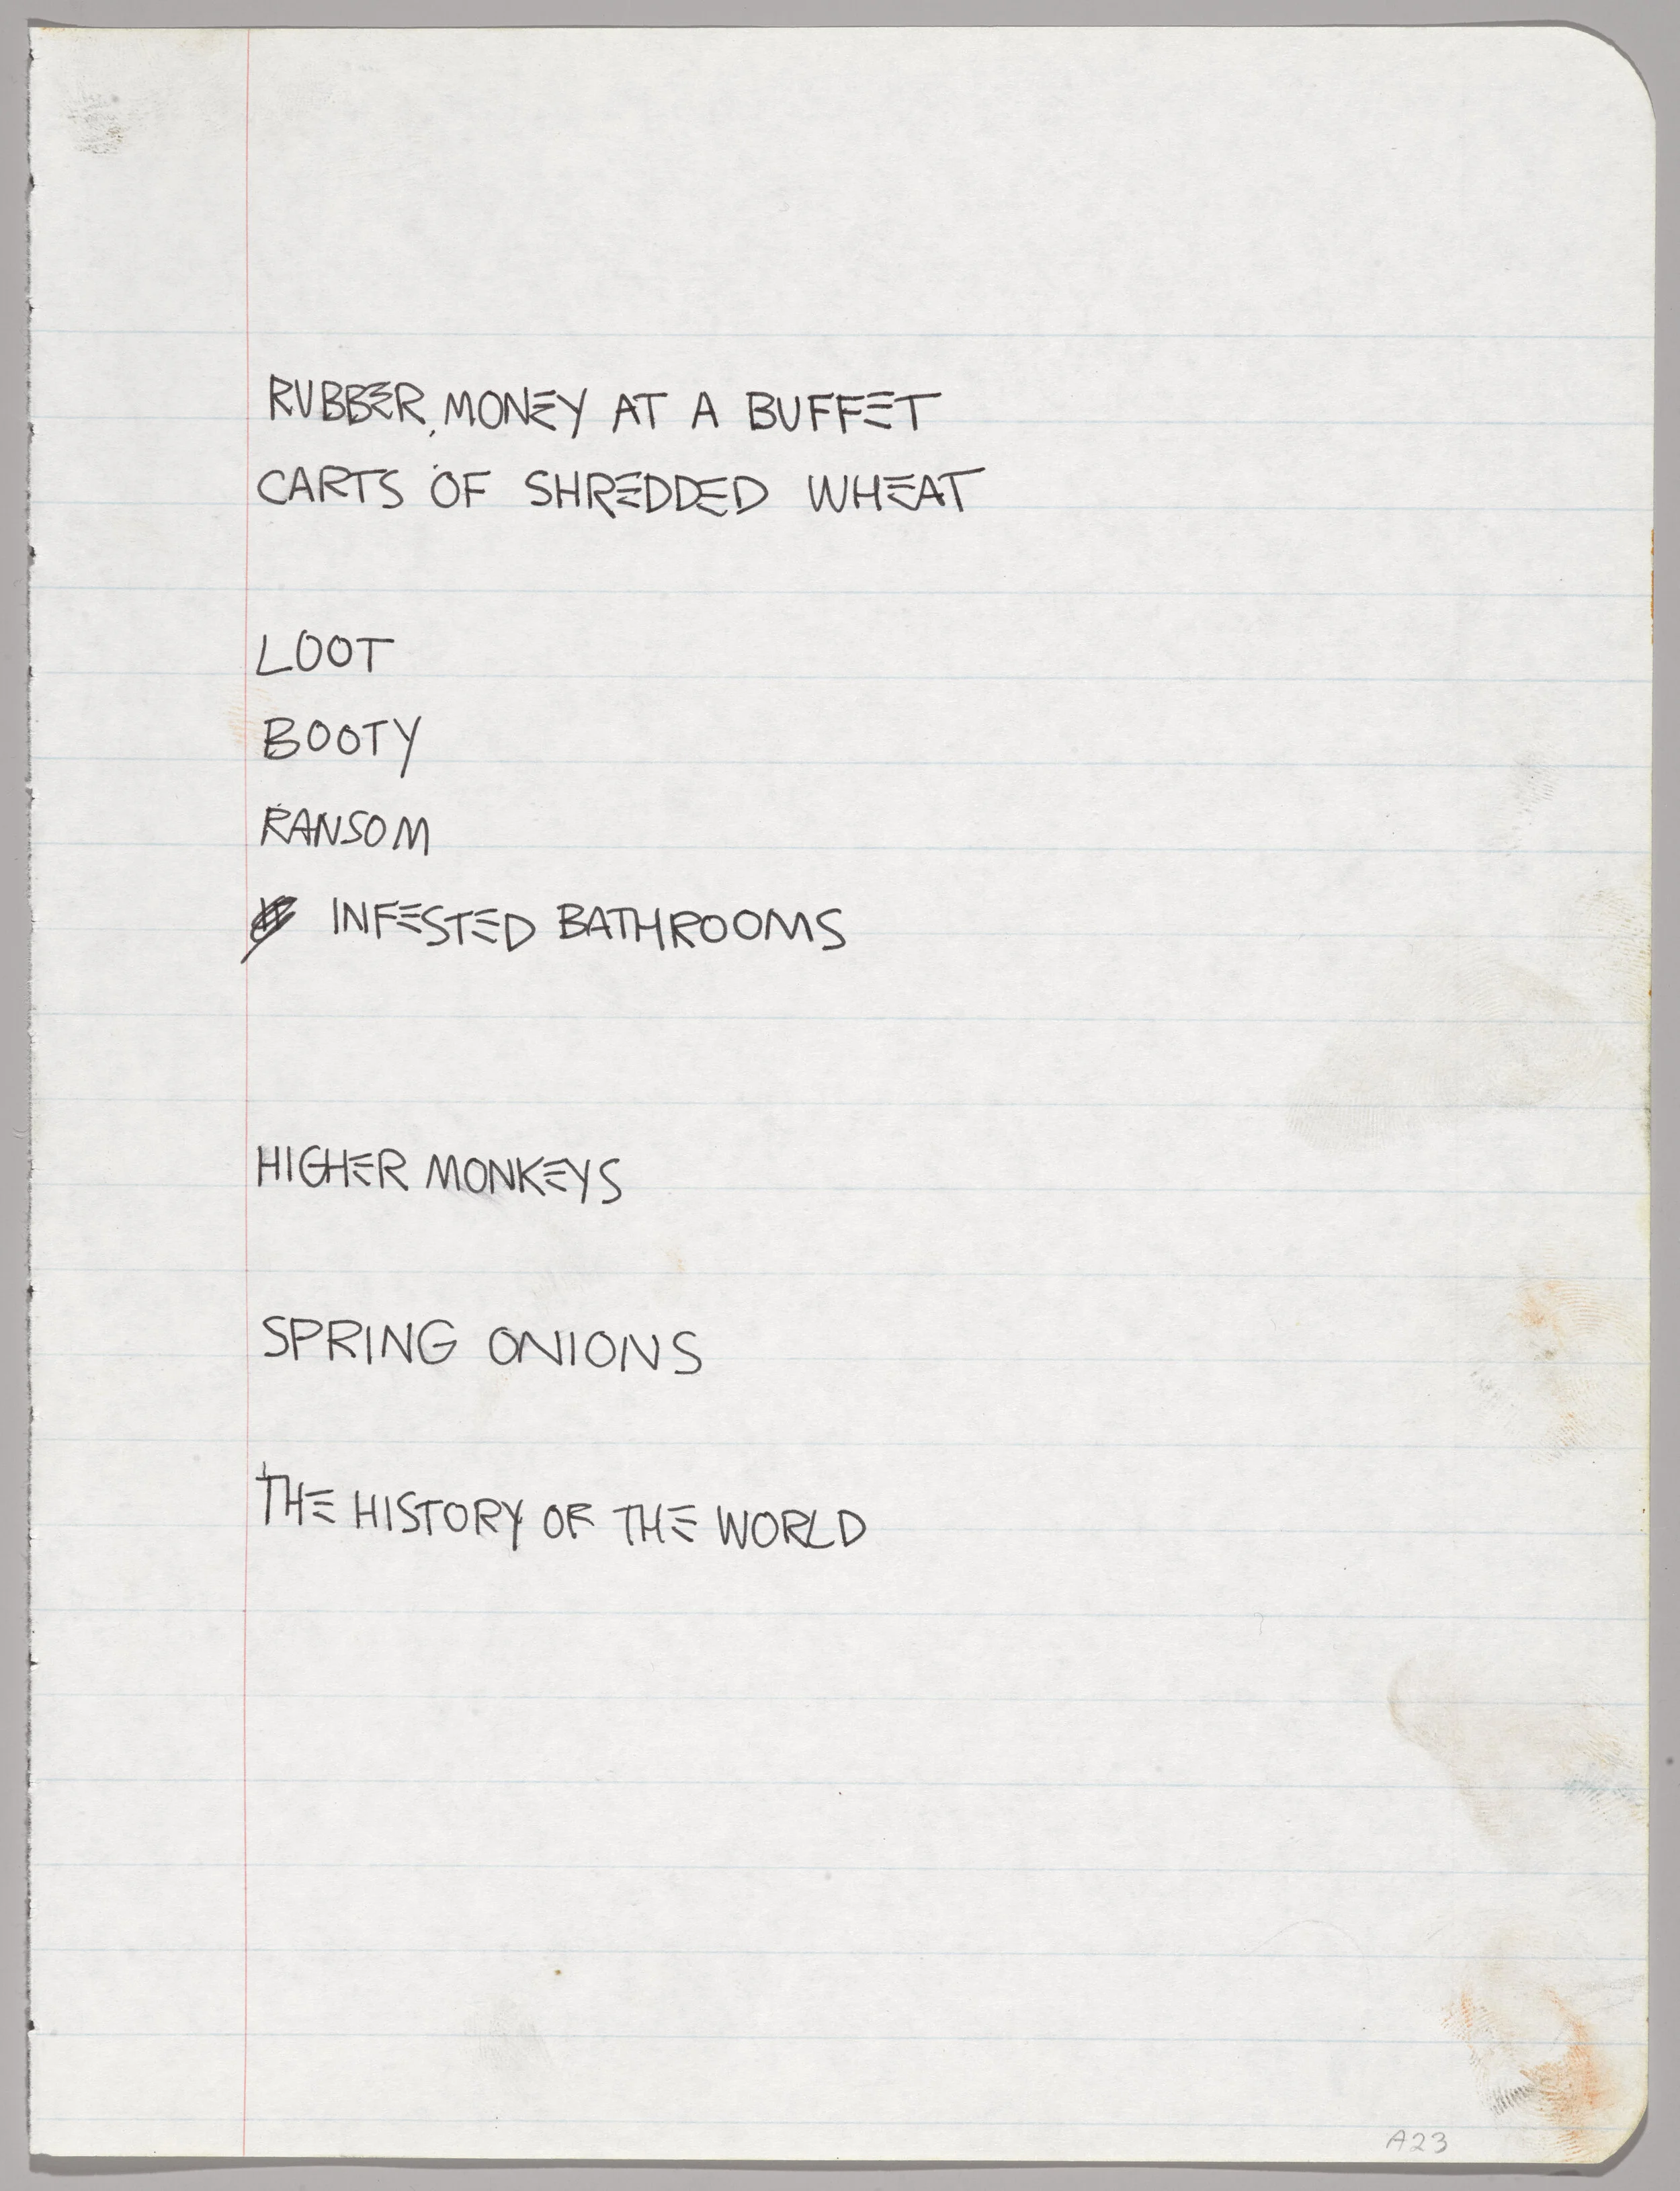 RUBBER, MONEY AT A BUFFET
CARTS OF SHREDDED WHEAT
LOOT
BOOTY
RANSOM
INFESTED BATHROOMS
HIGHER MONKEYS
SPRING ONIONS
THE HISTORY OF THE WORLD
A23